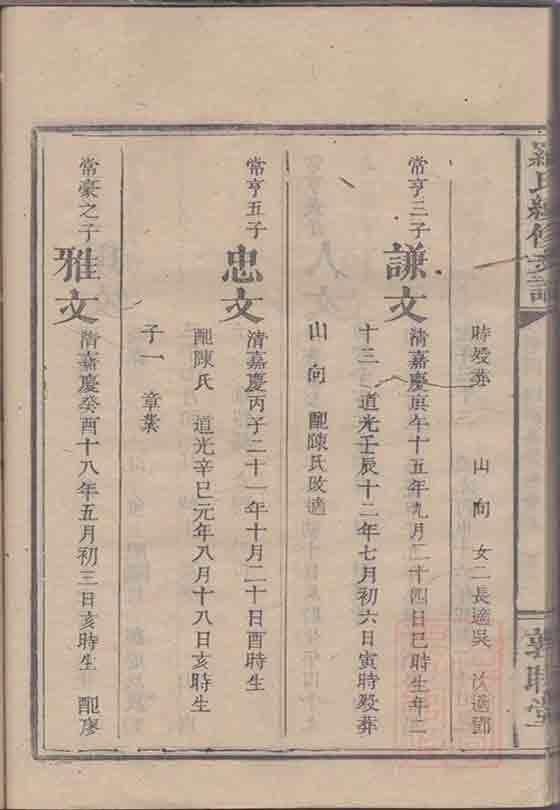 羅氏續修支譜
敦睦堂
時歿葬 山向 女二長適吳 次適鄧
常亨三子
謙文 清嘉慶庚午十五年九月二十四日巳時生年二
十三 道光壬辰十二年七月初六日寅時歿葬
山向 配陳氏改適
常亨五子
忠文 清嘉慶丙子二十一年十月二十日酉時生
配陳氏 道光辛巳元年八月十八日亥時生
子一 章業
常豪之子
雅文 清嘉慶癸酉十八年五月初三日亥時生 配廖